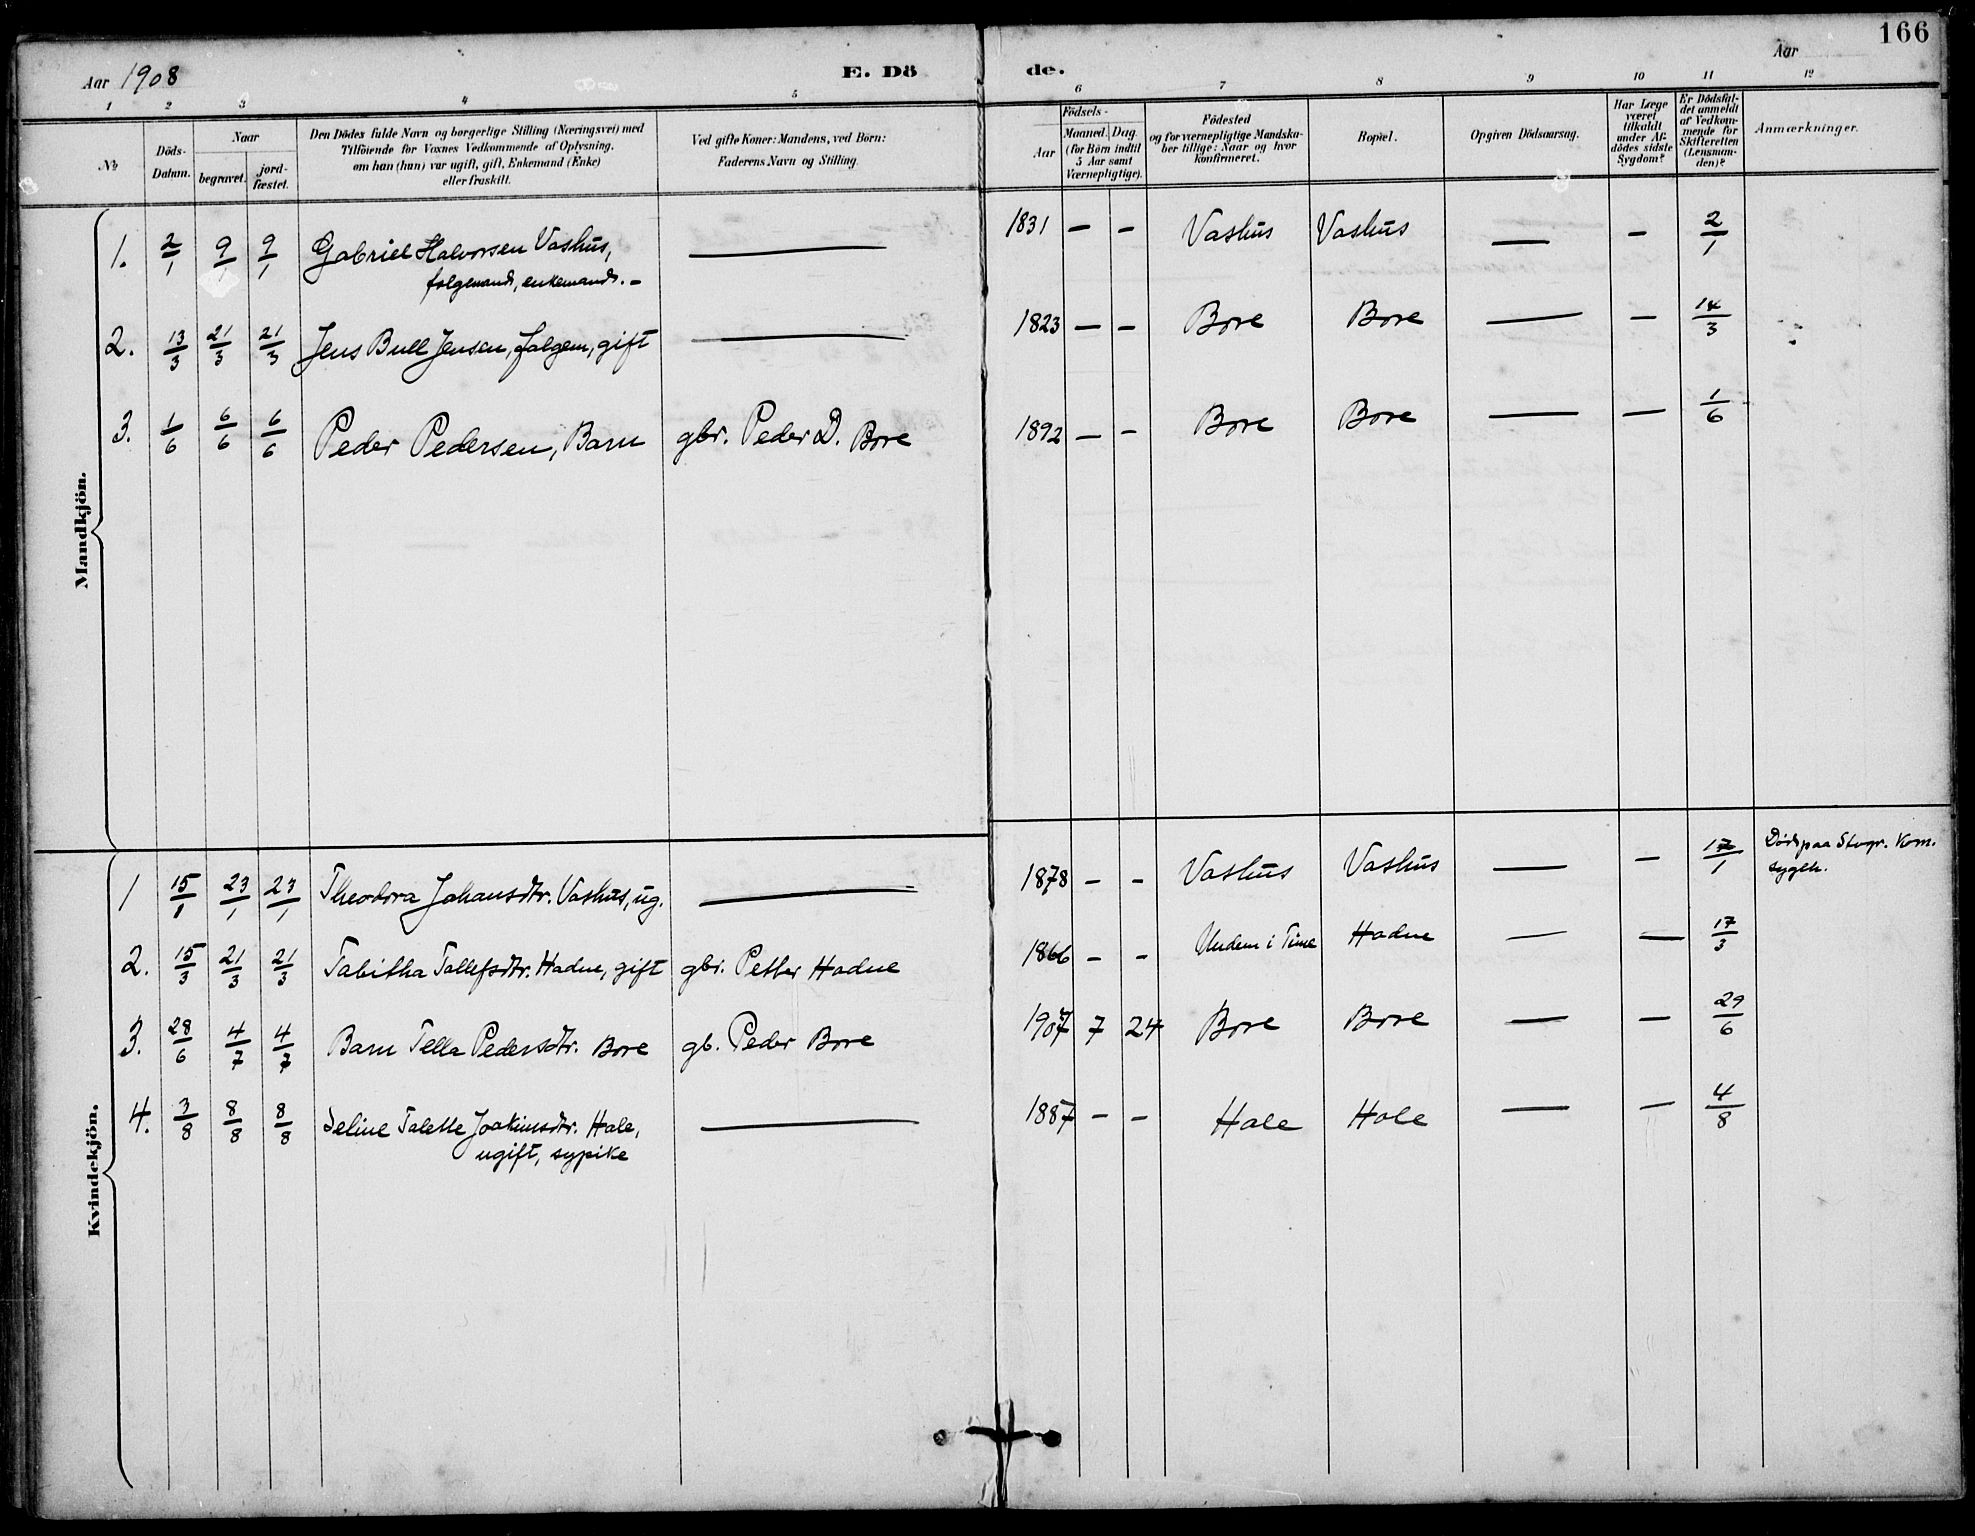 166
Aar 1908
E. Dö
de.
Aar
1 2 3 4 5 6 7 8 9 10 11 12
No.
Döds-
Datum.
Naar
begravet.
jord-
fæstet.
Den Dödes fulde Navn og borgerlige Stilling (Næringsvei) med
Tilföiende for Voxnes Vedkommende af Oplysning,
om han (hun) var ugift, gift, Enkemand (Enke)
eller fraskilt.
Ved gifte Koner: Mandens, ved Börn:
Faderens Navn og Stilling.
Födsels-
Aar
Maaned. Dag.
(for Börn indtil
5 Aar samt
Værnepligtige).
Födested
og for værnepligtige Mandska-
ber tillige: Naar og hvor
konfirmeret.
Bopæl.
Opgiven Dödsaarsag.
Har Læge
været
tilkaldt
under Af-
dödes sidste
Sygdom?
Er Dödsfal-
det anmeldt
af Vedkom-
mende for
Skifteretten
(Lensman-
den)?
Anmærkninger.
Mandkjön.
1. 2/1 9/1 9/1 Gabriel Halvorsen Vashus, — 1831 — — Vashus Vashus — — 2/1
folgemand, enkemand. —
2. 13/3 21/3 21/3 Jens Bull Jensen, folgem, gift — 1823 — — Bore Bore — — 14/3
3. 1/6 6/6 6/6 Peder Pedersen, Barn gbr. Peder D. Bore 1892 — — Bore Bore — — 1/6
Kvindekjön.
1 15/1 23/1 23/1 Theodora Johansdtr. Vashus, ug. — 1878 — — Vashus Vashus — — 17/1 Död paa Stvgr. Kom.
sygeh.
2. 15/3 21/3 21/3 Tabitha Tollefsdtr. Hadne, gift gbr. Petter Hadne 1866 — — Undem i Time Hadne — — 17/3
3. 28/6 4/7 4/7 Barn Tella Pedersdtr. Bore gb. Peder Bore 1907 7 24 Bore Bore — — 29/6
4. 3/8 8/8 8/8 Seline Talette Joakimsdtr. Hole, — 1887 — — Hole Hole — — 4/8
ugift, sypike